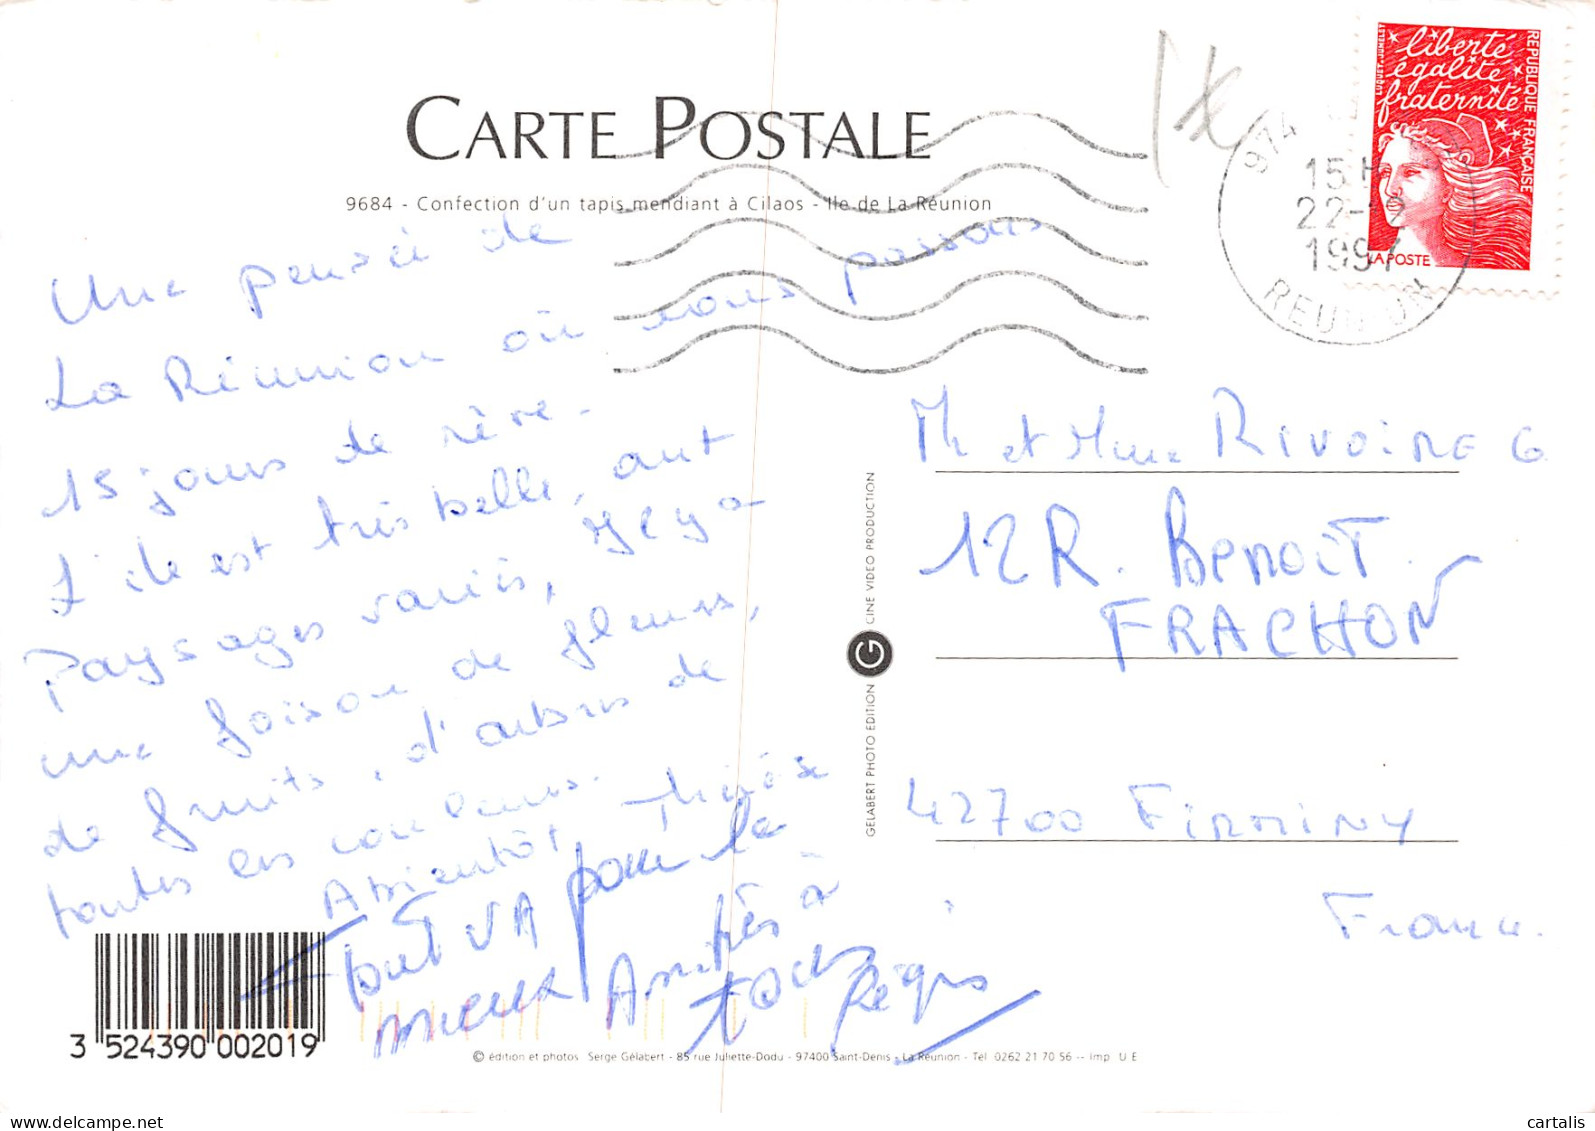 CARTE POSTALE
9684 - Confection d'un tapis mendiant à Cilaos - Ile de La Réunion
Une pensée de
La Réunion où nous passons
15 jours de rêve.
L'île est très belle, aut
paysages variés, Il y a
une foison de fleurs,
de fruits, d'arbres de
toutes les couleurs.
A bientôt
Tout VA pour le
mieux Amitiés à
tous Régis
3 524390 002019
© édition et photos Serge Gélabert - 85 rue Juliette-Dodu - 97400 Saint-Denis - La Réunion - Tél 0262 21 70 56 -- Imp U E
GELABERT PHOTO EDITION G CINE VIDEO PRODUCTION
liberté
égalité
fraternité
REPUBLIQUE FRANÇAISE
LA POSTE
974
15 H
22-12
1997
REUNION
M et Mme RIVOIRE G
12 R. BENOIT
FRACHON
42700 FIRMINY
France.
delcampe.net
cartalis